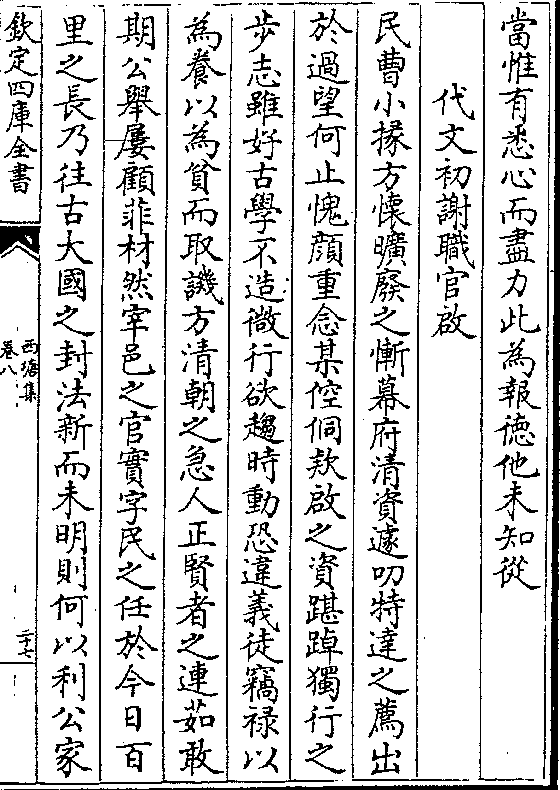 當惟有悉心而盡力此為報徳他未知從
代文初謝職官啟
民曹小掾方懷曠廢之慚幕府清資遽叨特達之薦出
於過望何止愧顔重念某倥侗欵啟之資踸踔獨行之
步志雖好古學不造微行欲趨時動恐違義徒竊禄以
為養以為貧而取譏方清朝之急人正賢者之連茹敢
期公舉屢顧菲材然宰邑之官實字民之任於今日百
里之長乃往古大國之封法新而未明則何以利公家
欽定四庫全書
西塘集
卷八
二十七